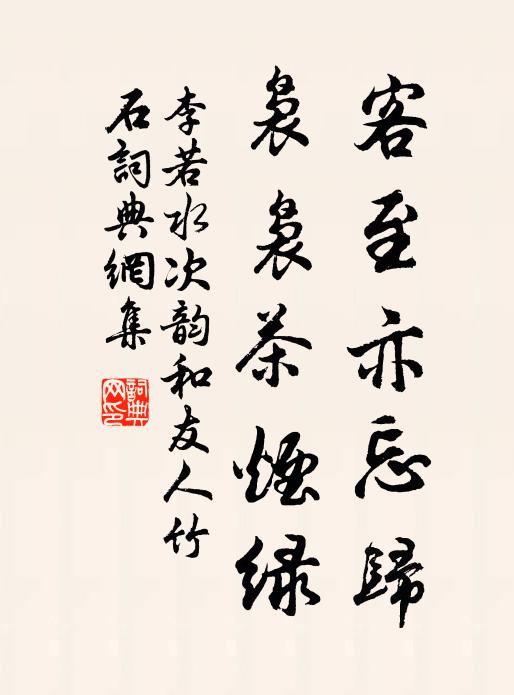 客至亦忘歸
裊裊茶煙綠
李若水次韵和友人竹
石詞典網集
詞典网印